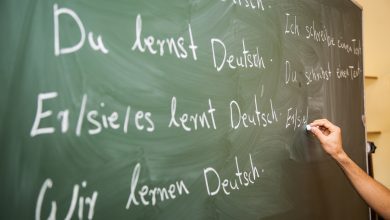 Du lernst Deutsch.
Er/sie/es lernt Deutsch.
Wir lernen Deutsch.
Ich schreibe einen Text.
Du schreibst einen Text.
Er/sie